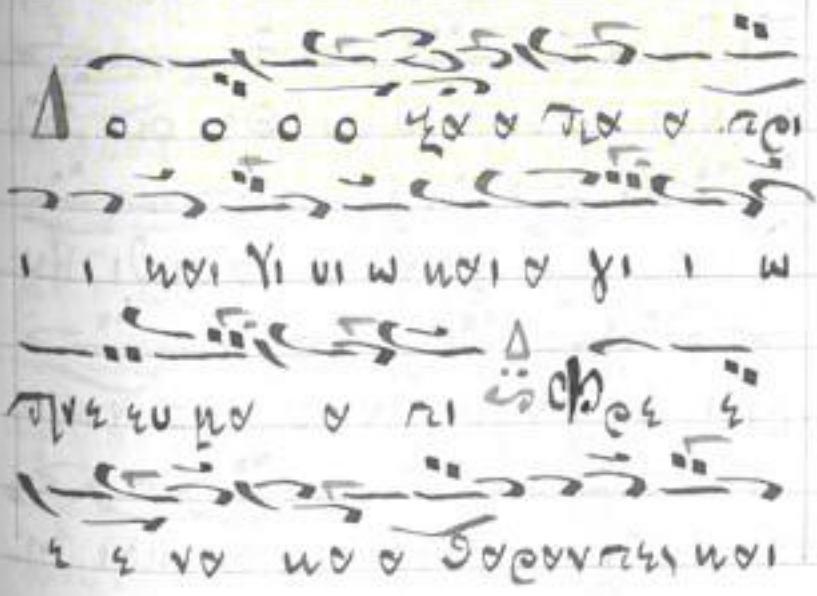 Δ ο ο ο ο ξα α πα α τρι
ι ι και Υι υι ω και α γι ι ω
Πνε ευ μα α τι Δ Φρε ε
ε ε να κα α θαραντες και